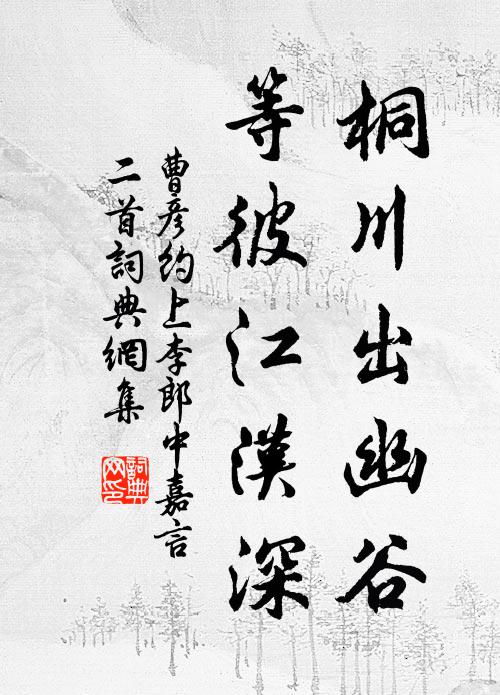 桐川出幽谷
等彼江漢深
曹彦約上李郎中嘉言
二首詞典網集
詞典
网印